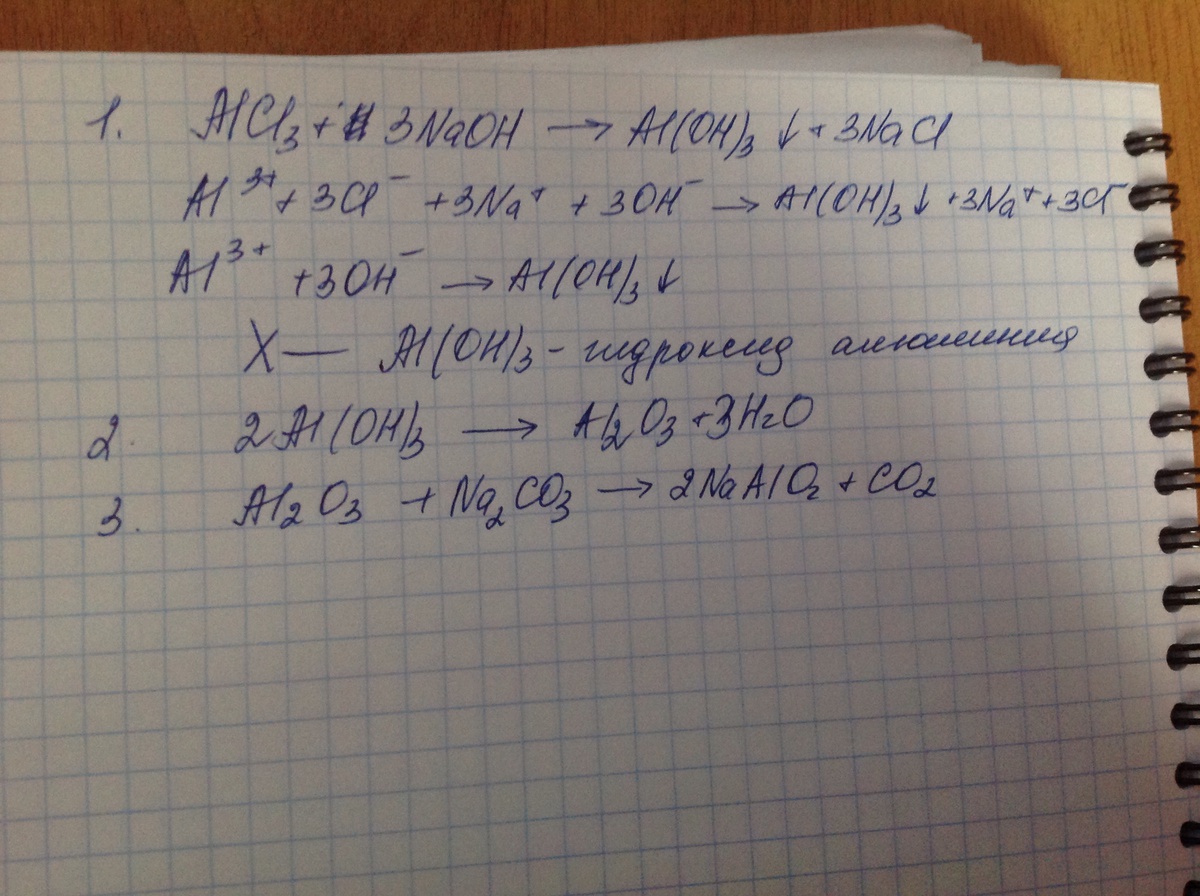 1. AlCl₃ + 3NaOH → Al(OH)₃ ↓ + 3NaCl
Al³⁺ + 3Cl⁻ + 3Na⁺ + 3OH⁻ → Al(OH)₃ ↓ + 3Na⁺ + 3Cl⁻
Al³⁺ + 3OH⁻ → Al(OH)₃ ↓
X — Al(OH)₃ - гидроксид алюминия
2. 2Al(OH)₃ → Al₂O₃ + 3H₂O
3. Al₂O₃ + Na₂CO₃ → 2NaAlO₂ + CO₂